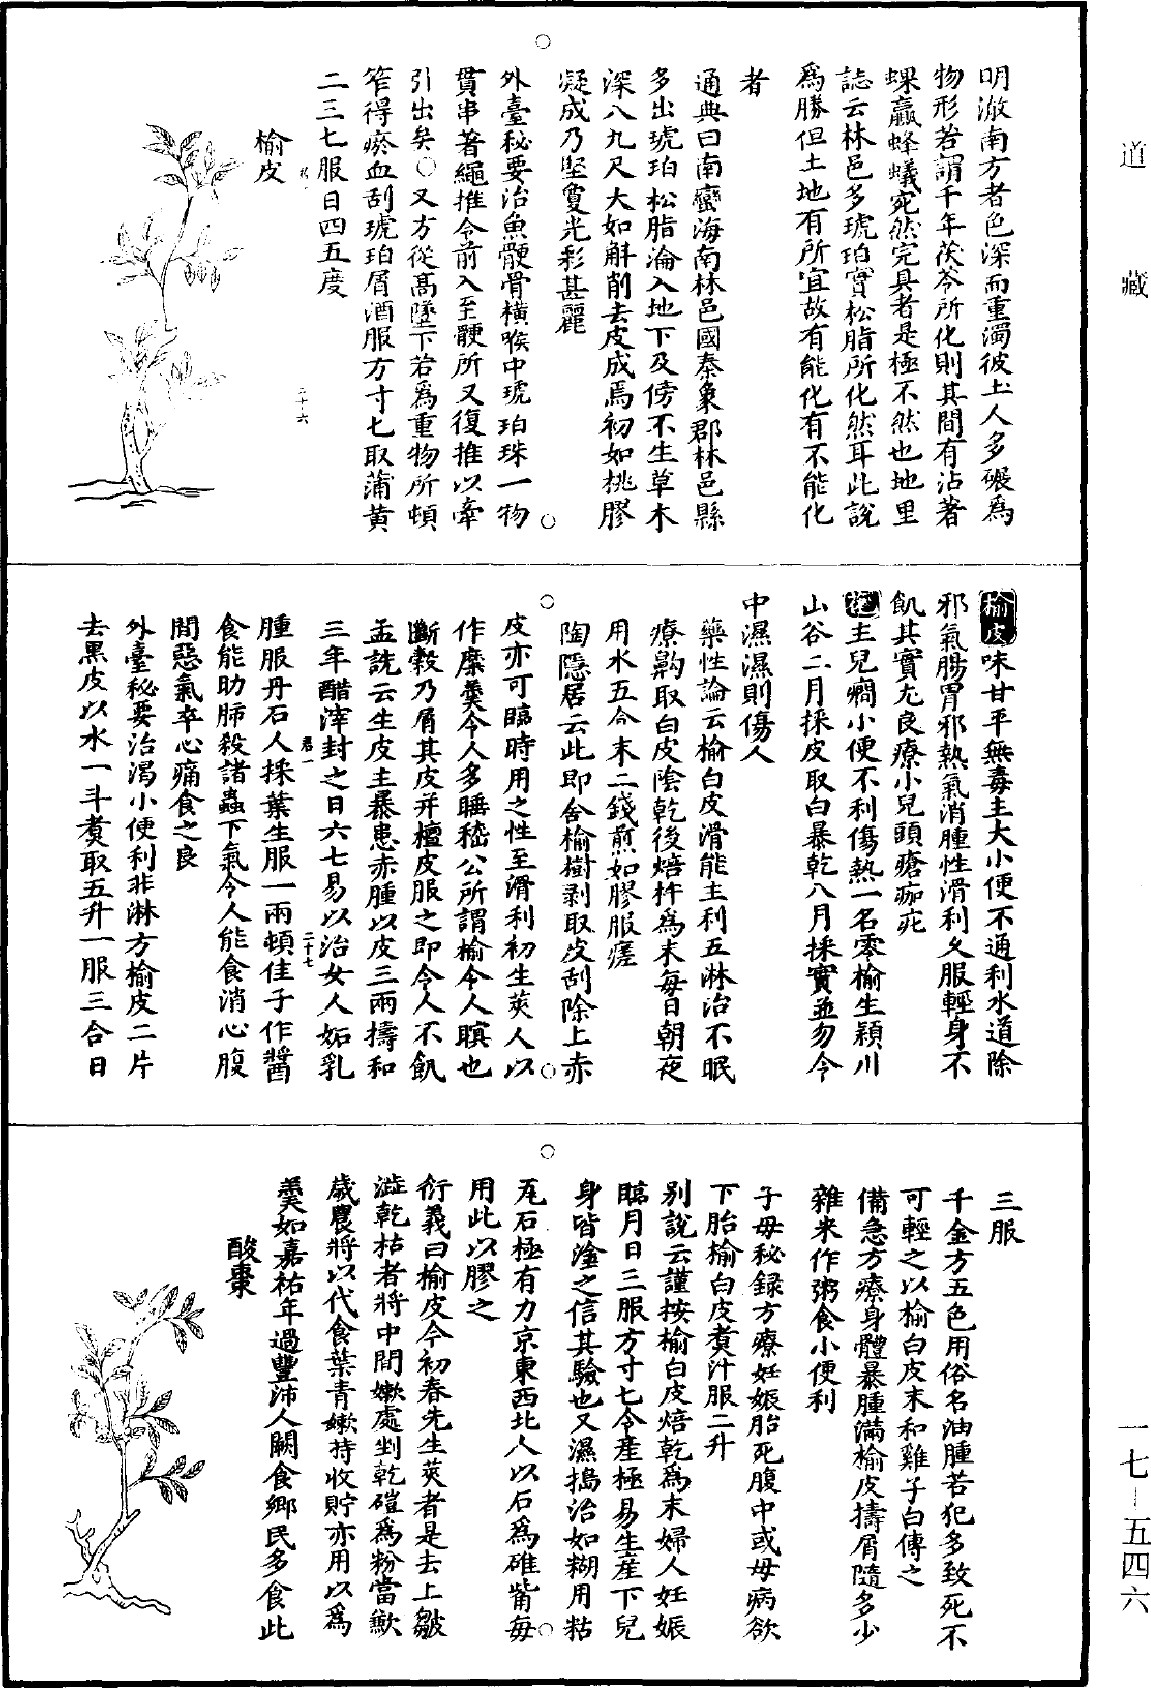 道藏
明澈南方者色深而重濁彼土人多碾爲
物形若謂千年茯苓所化則其間有沾著
蜾蠃蜂蟻宛然完具者是極不然也地里
誌云林邑多琥珀實松脂所化然耳此說
爲勝但土地有所宜故有能化有不能化
者
通典曰南蠻海南林邑國秦象郡林邑縣
多出琥珀松脂淪入地下及傍不生草木
深八九尺大如斛削去皮成焉初如桃膠
凝成乃堅敻光彩甚麗
外臺秘要治魚骾骨橫喉中琥珀珠一物
貫串著繩推令前入至骾所又復推以牽
引出矣○又方從高墜下若爲重物所頓
笮得瘀血刮琥珀屑酒服方寸匕取蒲黄
二三匕服日四五度
二十六
榆皮
榆皮味甘平無毒主大小便不通利水道除
邪氣腸胃邪熱氣消腫性滑利久服輕身不
飢其實尤良療小兒頭瘡痂疕
主兒癇小便不利傷熱一名零榆生潁川
山谷二月採皮取白暴乾八月採實並勿令
中濕濕則傷人
藥性論云榆白皮滑能主利五淋治不眠
療齁取白皮陰乾後焙杵爲末每日朝夜
用水五合末二錢煎如膠服瘥
陶隱居云此即舍榆樹剥取皮刮除上赤
皮亦可臨時用之性至滑利初生莢人以
作糜羹令人多睡嵇公所謂榆令人瞑也
斷穀乃屑其皮并檀皮服之即令人不飢
孟詵云生皮主暴患赤腫以皮三兩擣和
三年醋滓封之日六七易以治女人妬乳
腫服丹石人採葉生服一兩頓佳子作醬
二十七
食能助肺殺諸蟲下氣令人能食消心腹
間惡氣卒心痛食之良
外臺秘要治渴小便利非淋方榆皮二片
去黑皮以水一斗煑取五升一服三合日
三服
千金方五色用俗名油腫若犯多致死不
可輕之以榆白皮末和雞子白傅之
備急方療身體暴腫滿榆皮擣屑隨多少
雜米作粥食小便利
子母秘録方療妊娠胎死腹中或母病欲
下胎榆白皮煑汁服二升
別說云謹按榆白皮焙乾爲末婦人妊娠
臨月日三服方寸匕令産極易生産下兒
身皆塗之信其驗也又濕搗治如糊用粘
瓦石極有力京東西北人以石爲碓觜每
用此以膠之
衍義曰榆皮今初春先生莢者是去上皺
澁乾枯者將中間嫩處剉乾磑爲粉當歉
歲農將以代食葉青嫩時收貯亦用以爲
羹如嘉祐年過豐沛人闕食鄉民多食此
酸棗
一七-五四六